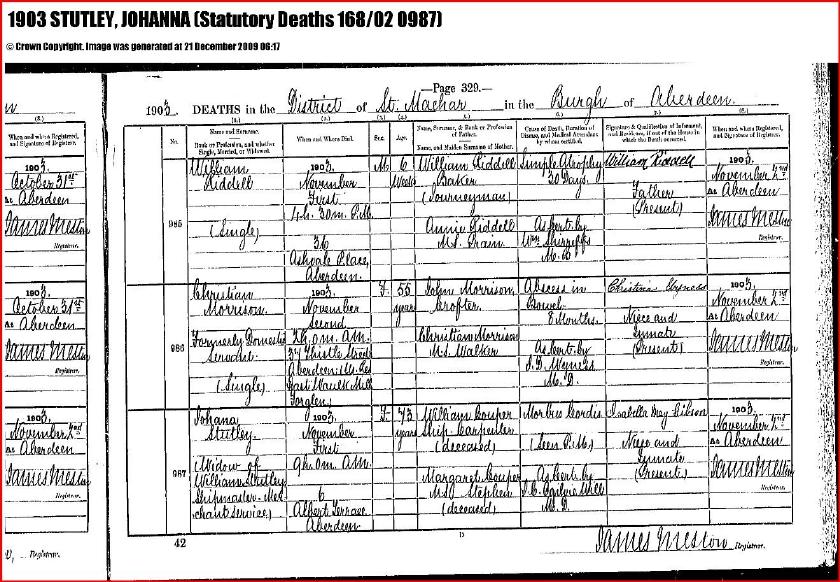 1903 STUTLEY, JOHANNA (Statutory Deaths 168/02 0987)
© Crown Copyright. Image was generated at 21 December 2009 06:17
—Page 329.—
1903. DEATHS in the District of St. Machar in the Burgh of Aberdeen.
No.
Name and Surname.
Rank or Profession, and whether Single, Married, or Widowed.
When and Where Died.
Sex.
Age.
Name, Surname, & Rank or Profession of Father.
Name, and Maiden Surname of Mother.
Cause of Death, Duration of Disease, and Medical Attendant by whom certified.
Signature & Qualification of Informant, and Residence, if out of the House in which the Death occurred.
When and where Registered, and Signature of Registrar.
When and where Registered, and Signature of Registrar.
1903.
October 31st
At Aberdeen
James Meston
Registrar.
1903.
October 31st
At Aberdeen
James Meston
Registrar.
1903.
November 2nd
At Aberdeen
James Meston
Registrar.
Registrar.
985
William
Riddell
(Single)
1903.
November
First
4h. 30m. P.M.
36
Ashvale Place,
Aberdeen.
M.
6
Weeks
William Riddell
Baker
(Journeyman)
Annie Riddell
M.S. Train
Simple Atrophy
30 Days.
As cert. by
Wm
M.B.
William Riddell
Father
(Present)
1903.
November 2nd
At Aberdeen
James Meston
Registrar.
986
Christian
Morrison.
Formerly Domestic
Servant.
(Single)
1903.
November
Second
0m. A.M.
37 Thistle Street
Aberdeen
Waulk Mill
Forglen.
F.
55
years
John Morrison,
Crofter.
Christian Morrison
M.S. Walker
Abscess in
Bowel
8 Months.
As cert. by
M.D.
Christina
Niece and
Inmate
(Present)
1903.
November 2nd
At Aberdeen
James Meston
Registrar.
987
Johana
Stutley.
(Widow of
William Stutley
Shipmaster-Mer
chant service)
1903.
November
First
9h. 0m. A.M.
6
Albert Terrace
Aberdeen
F.
73
years
William Couper
Ship Carpenter
(deceased)
Margaret Couper
M.S. Stephen
(deceased)
Morbus Cordis
(Seen P.M.)
As cert. by
J. C. Ogilvie Will
M.D.
Isabella May Gibson
Niece and
Inmate
(Present)
1903.
November 2nd
At Aberdeen
James Meston
Registrar.
42
James Meston Registrar.